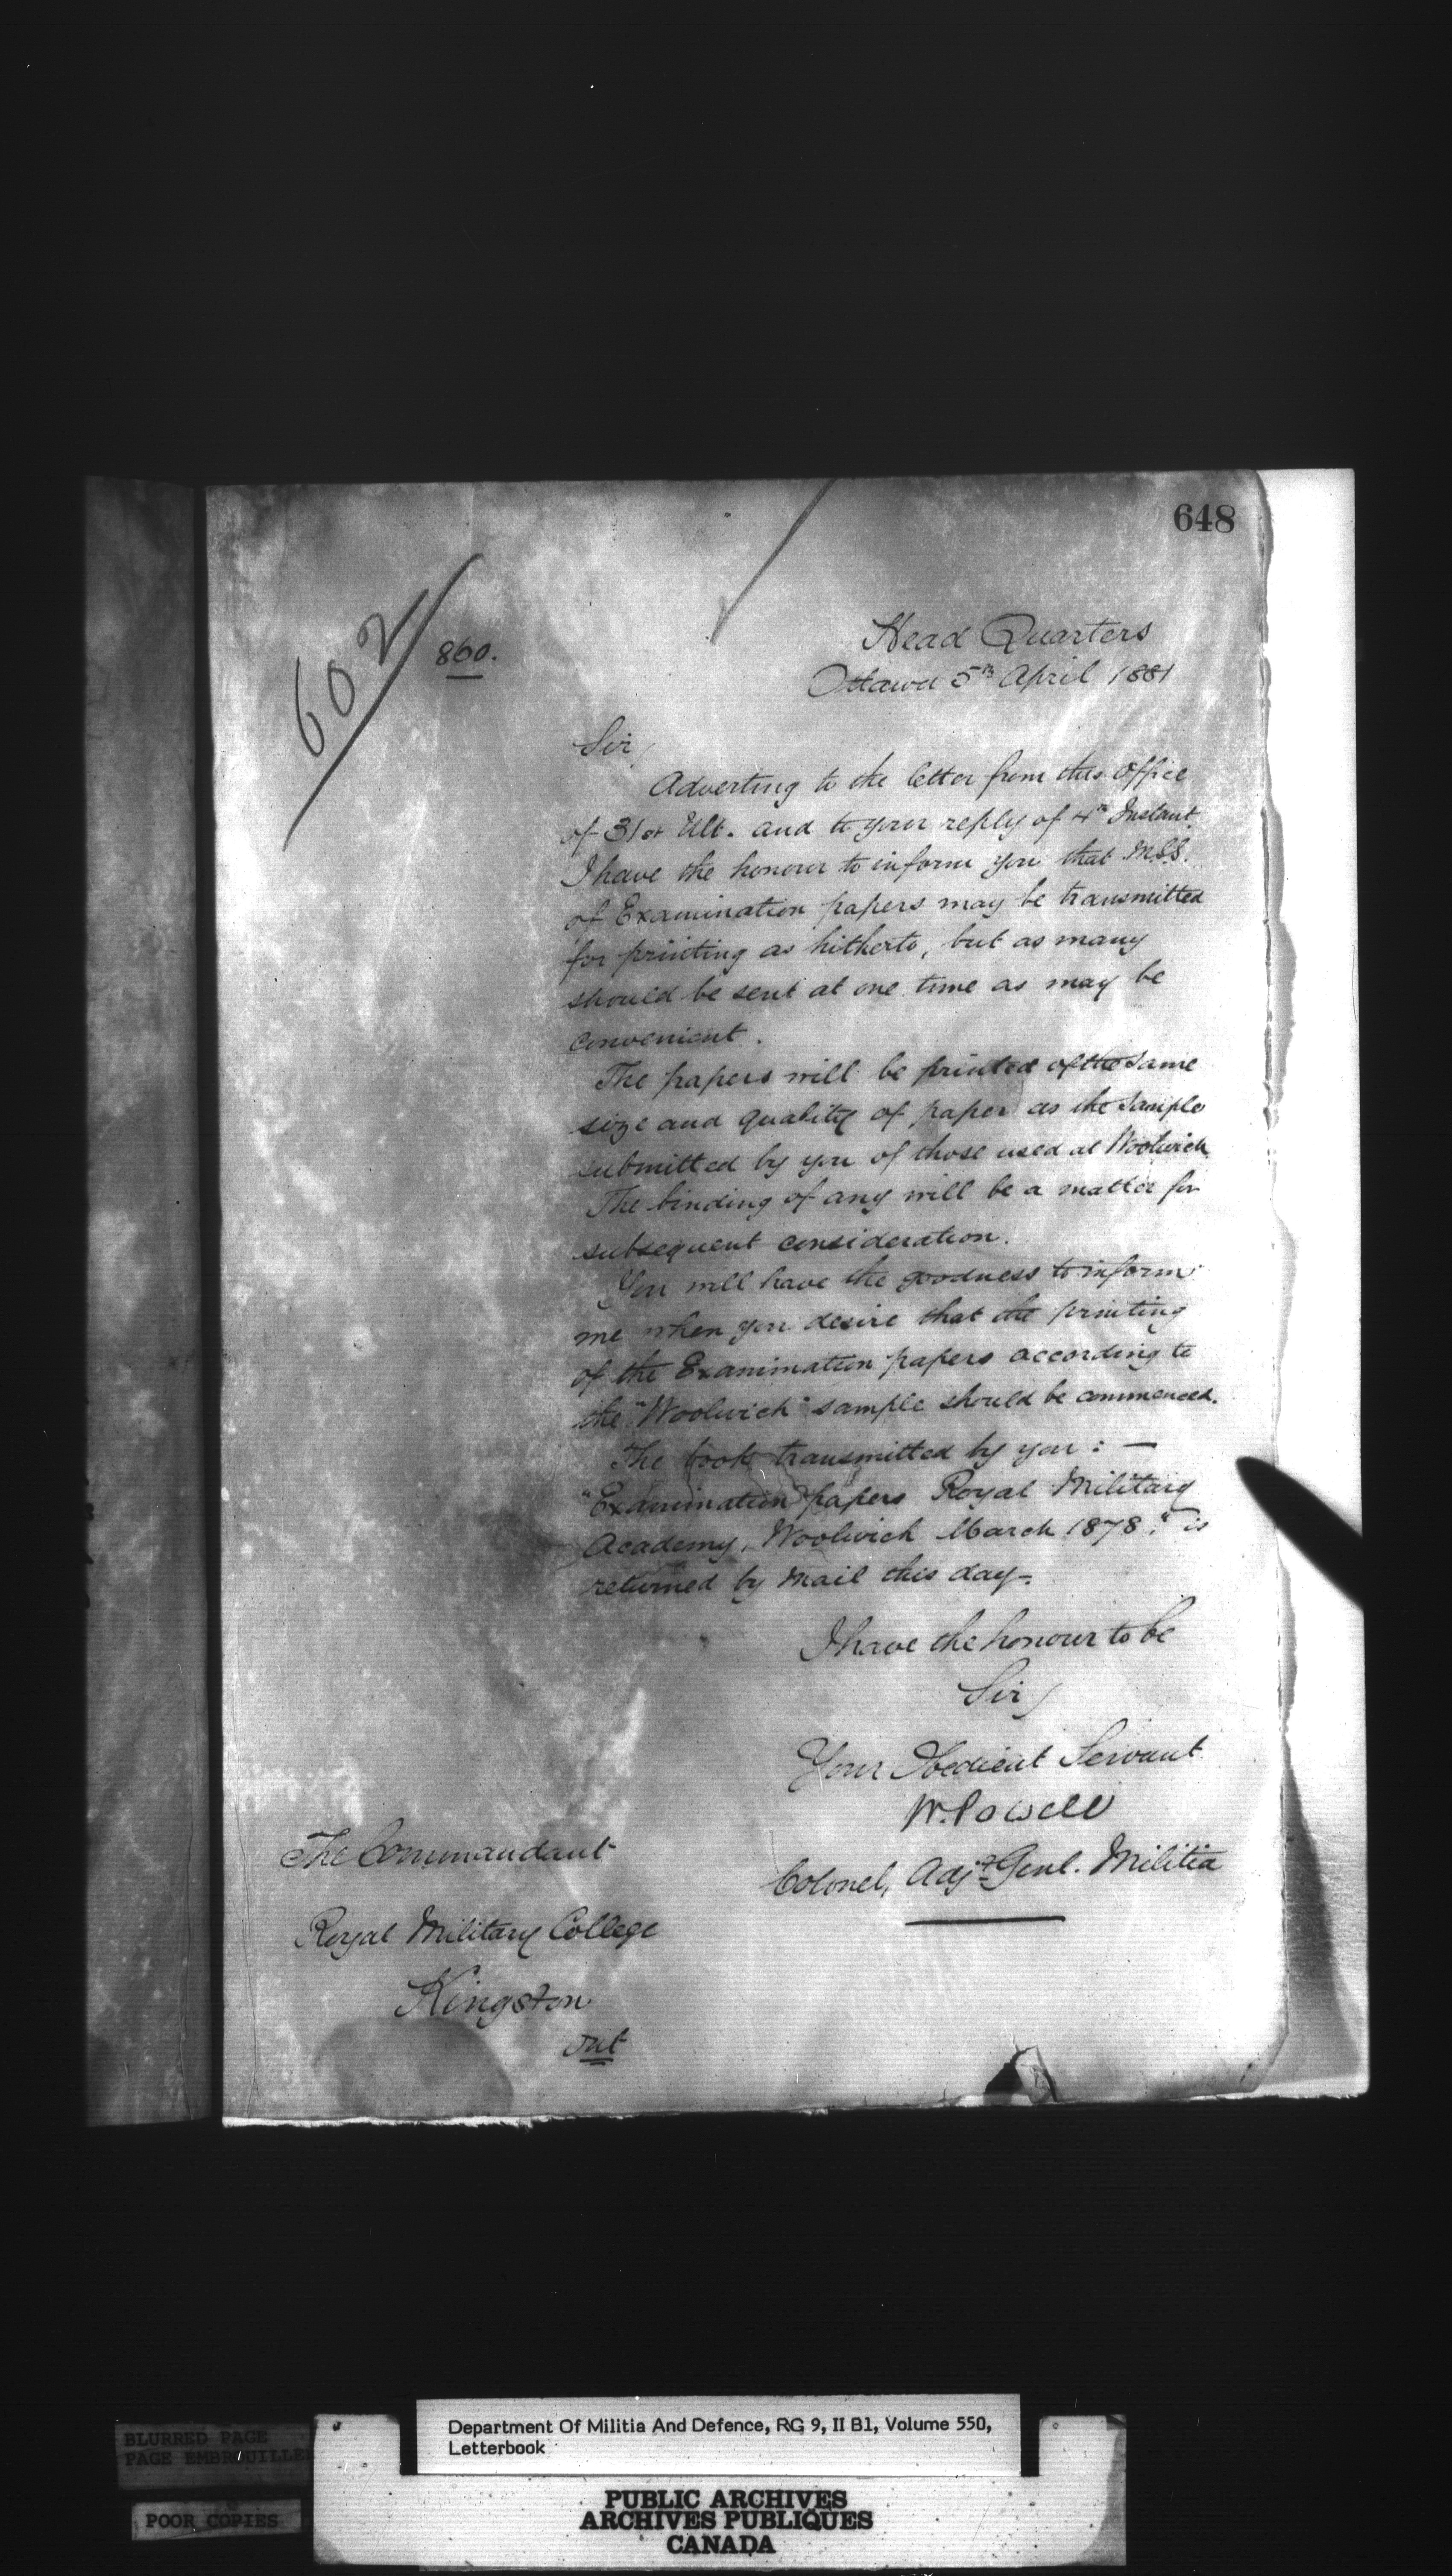 648
602
860.
Head Quarters
Ottawa 5th April 1881
Sir,
Adverting to the letter from this Office
of 31st Ult. and to your reply of 4th Instant
I have the honour to inform you that M.S.S.
of Examination papers may be transmitted
for printing as hitherto, but as many
should be sent at one time as may be
convenient.
The papers will be printed of the same
size and quality of paper as the sample
submitted by you of those used at Woolwich
The binding of any will be a matter for
subsequent consideration.
You will have the goodness to inform
me when you desire that the printing
of the Examination papers according to
the "Woolwich" sample should be commenced.
The book transmitted by you: —
"Examination papers Royal Military
Academy, Woolwich March 1878." is
returned by mail this day.
I have the honour to be
Sir,
Your Obedient Servant
W. Powell
Colonel, Adjt Genl. Militia
The Commandant
Royal Military College
Kingston
Ont
BLURRED PAGE
PAGE EMBROUILLEE
POOR COPIES
Department Of Militia And Defence, RG 9, II B1, Volume 550,
Letterbook
PUBLIC ARCHIVES
ARCHIVES PUBLIQUES
CANADA